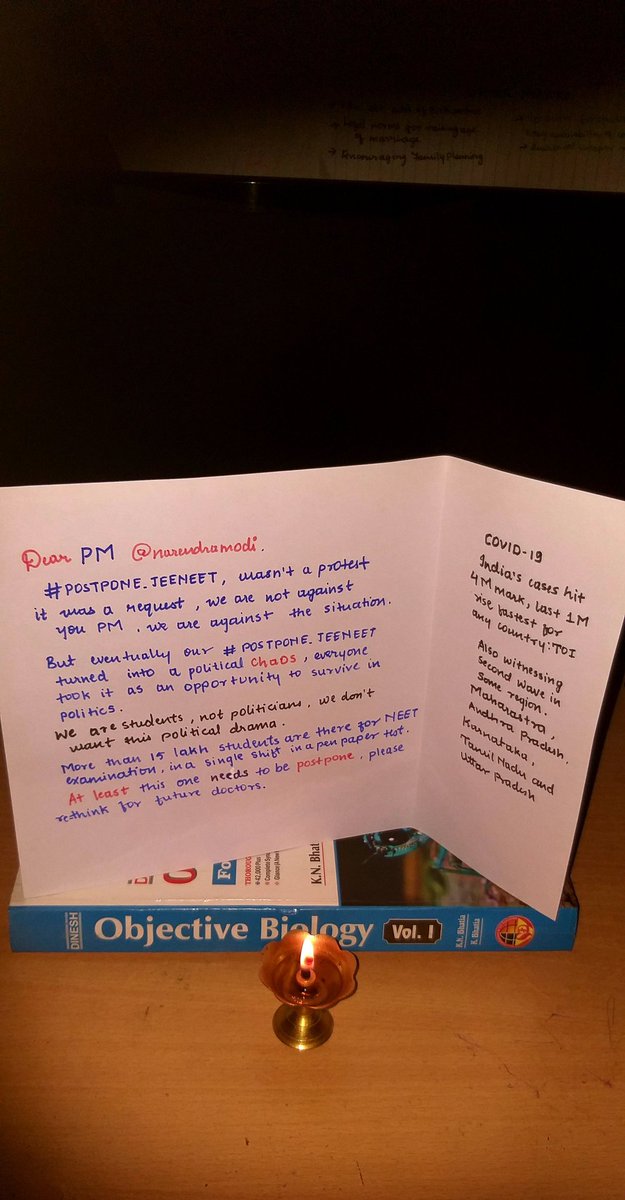 of marriage
→ Encouraging Family Planning
Dear PM @narendramodi.
#POSTPONE_JEENEET, wasn't a protest
it was a request, we are not against
you PM, we are against the situation.
But eventually our #POSTPONE_JEENEET
turned into a political Chaos, everyone
took it as an opportunity to survive in
politics.
We are students, not politicians, we don't
want this political drama.
More than 15 lakh students are there for NEET
examination, in a single shift in a pen paper test.
At least this one needs to be postpone, please
rethink for future doctors.
COVID-19
India's cases hit
4M mark, last 1M
rise fastest for
any country:TOI
Also witnessing
second wave in
some region.
Maharastra,
Andhra Pradesh,
Karnataka,
Tamil Nadu and
Uttar Pradesh
Fo
THOROUG
K.N. Bhat
DINESH
Objective Biology
Vol. I
K.N. Bhatia
K. Bhatia